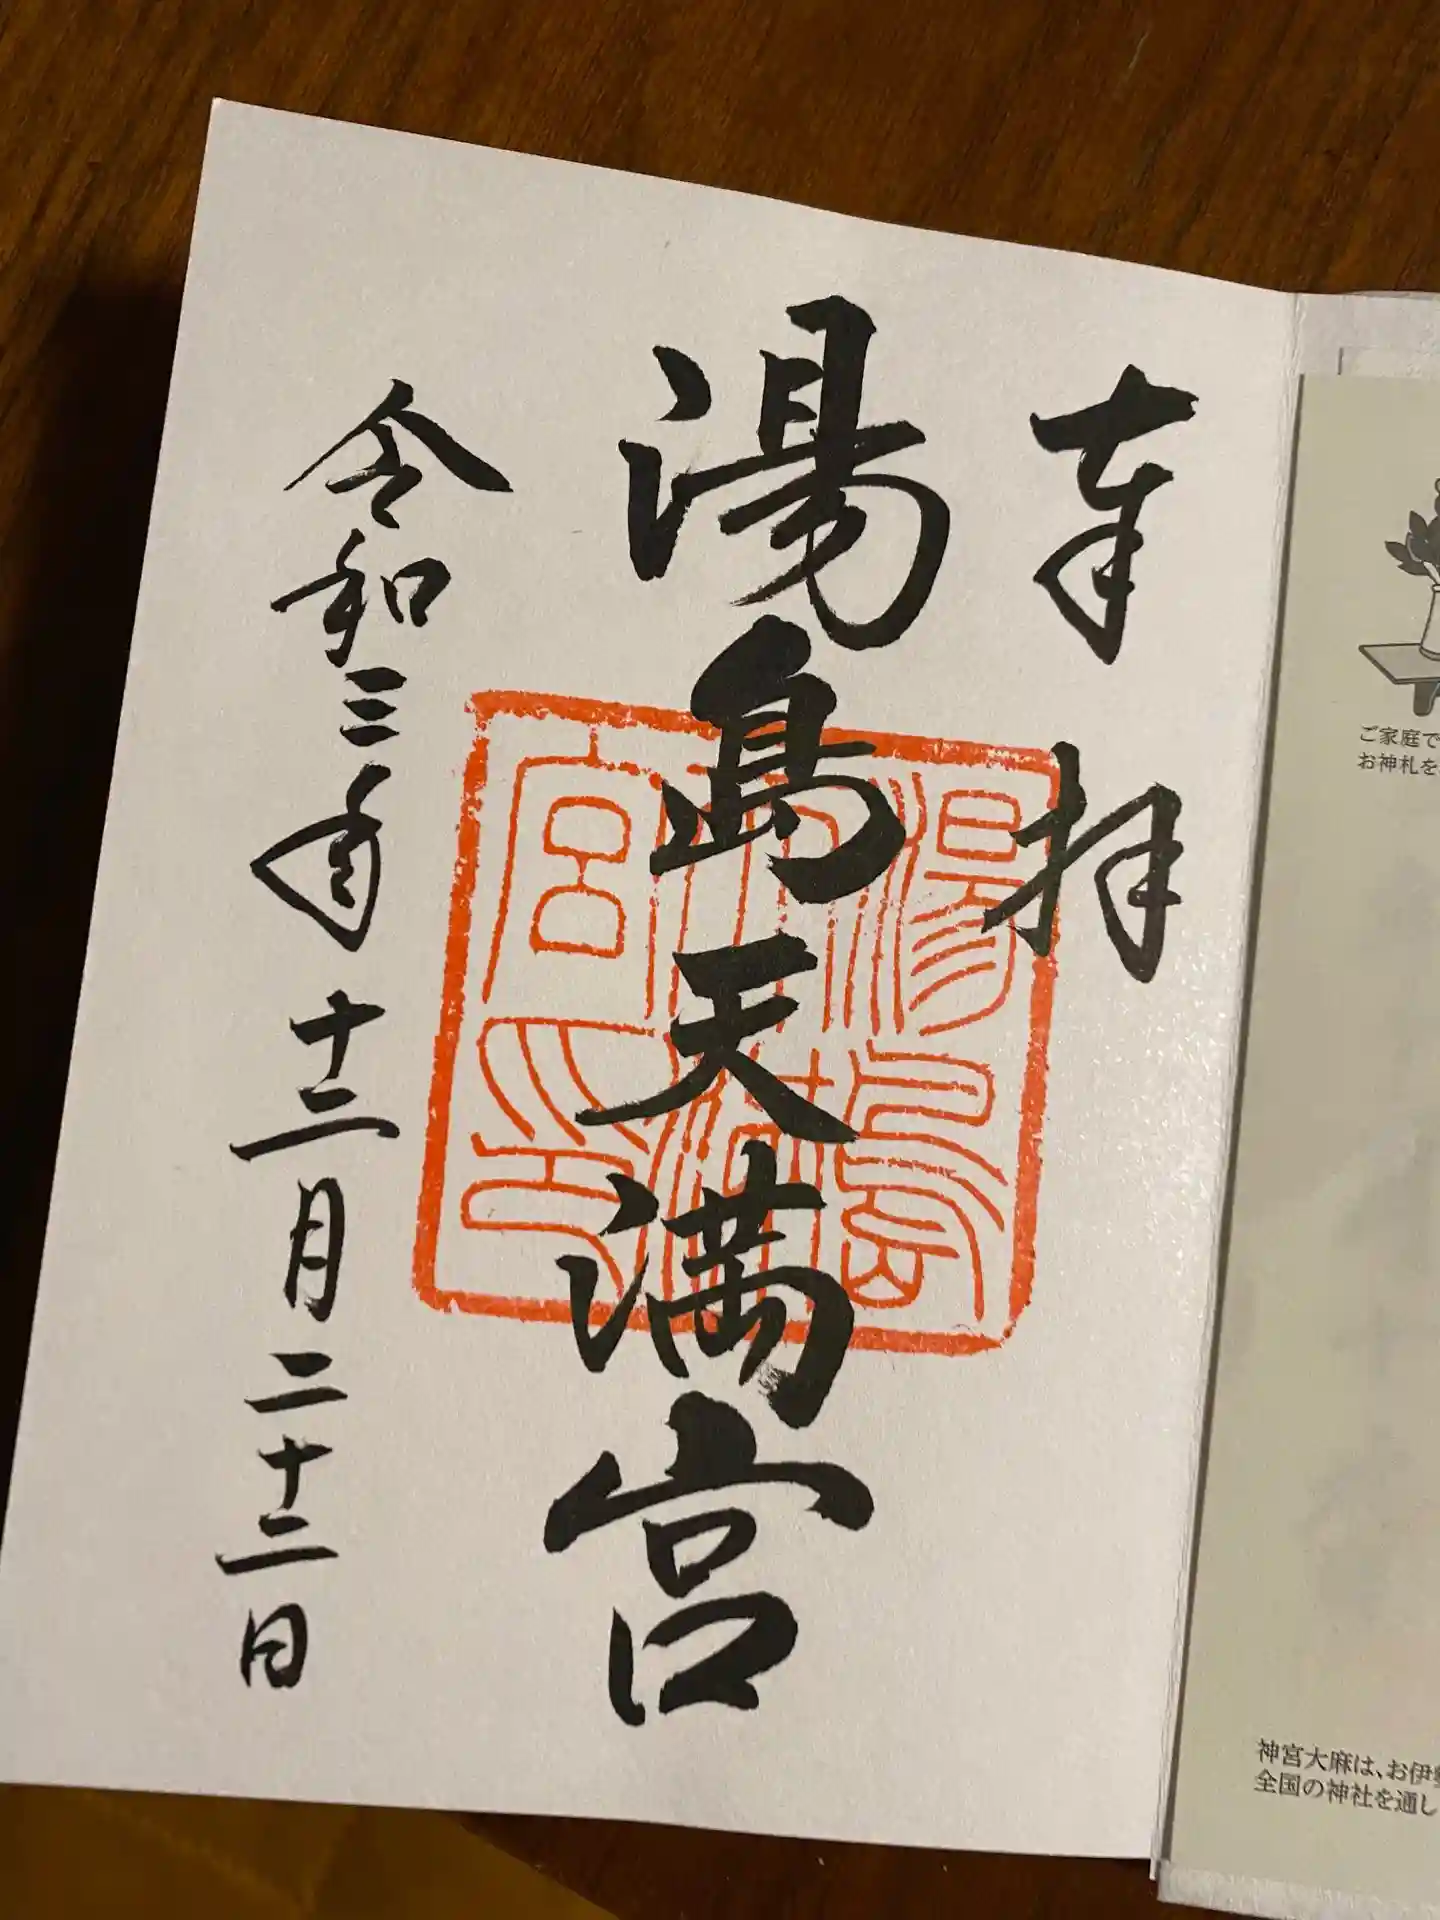 奉拝
湯島天満宮
令和三年十二月二十二日
湯島天満宮之印
ご家庭で
お神札を
神宮大麻は、お伊勢
全国の神社を通し